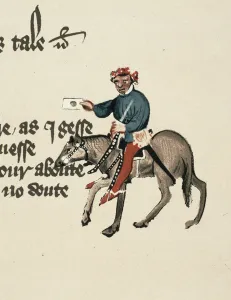 s tale
e, as I gesse
uesse
our aboute
no doute